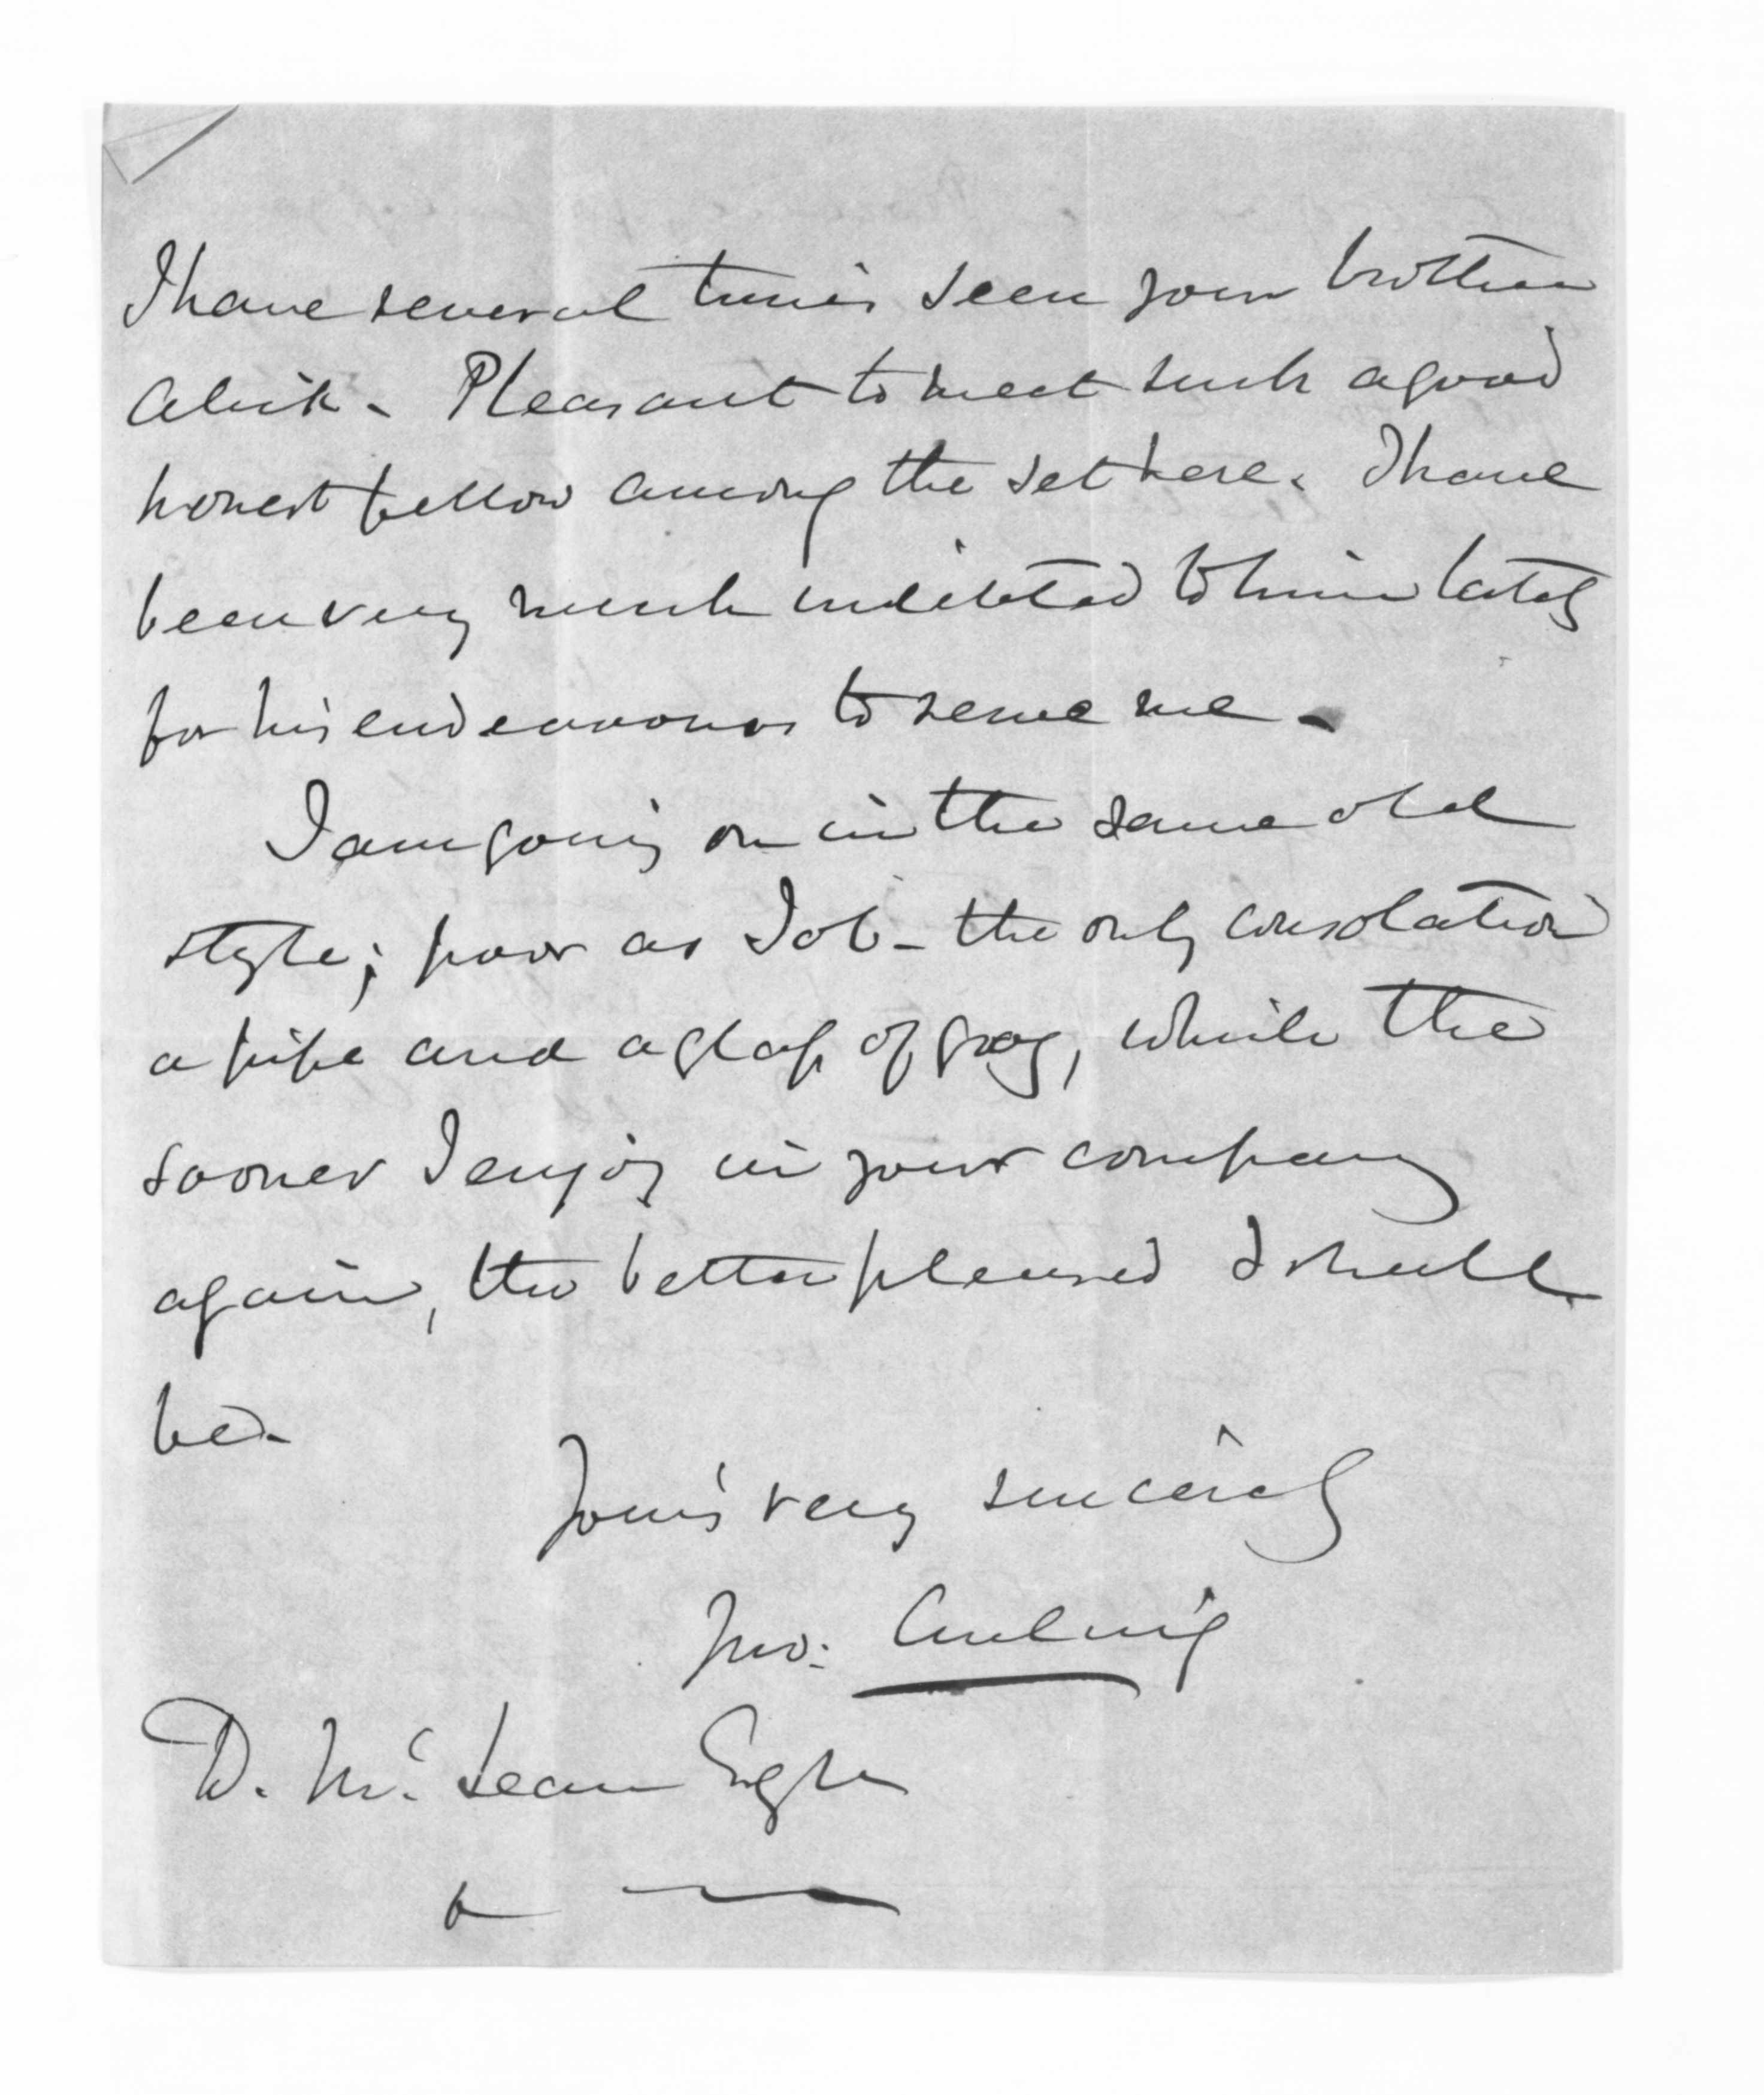 I have several times seen your brother
Alick - Pleasant to meet such a good
honest fellow among the set here. I have
been very much indebted to him lately
for his endeavours to serve me -
I am going on in the same old
style; poor as Job - the only consolation
a pipe and a glass of grog, which the
sooner I enjoy in your company
again, the better pleased I shall
be -
Yours very sincerely
Jno:
D. McLean Esqre